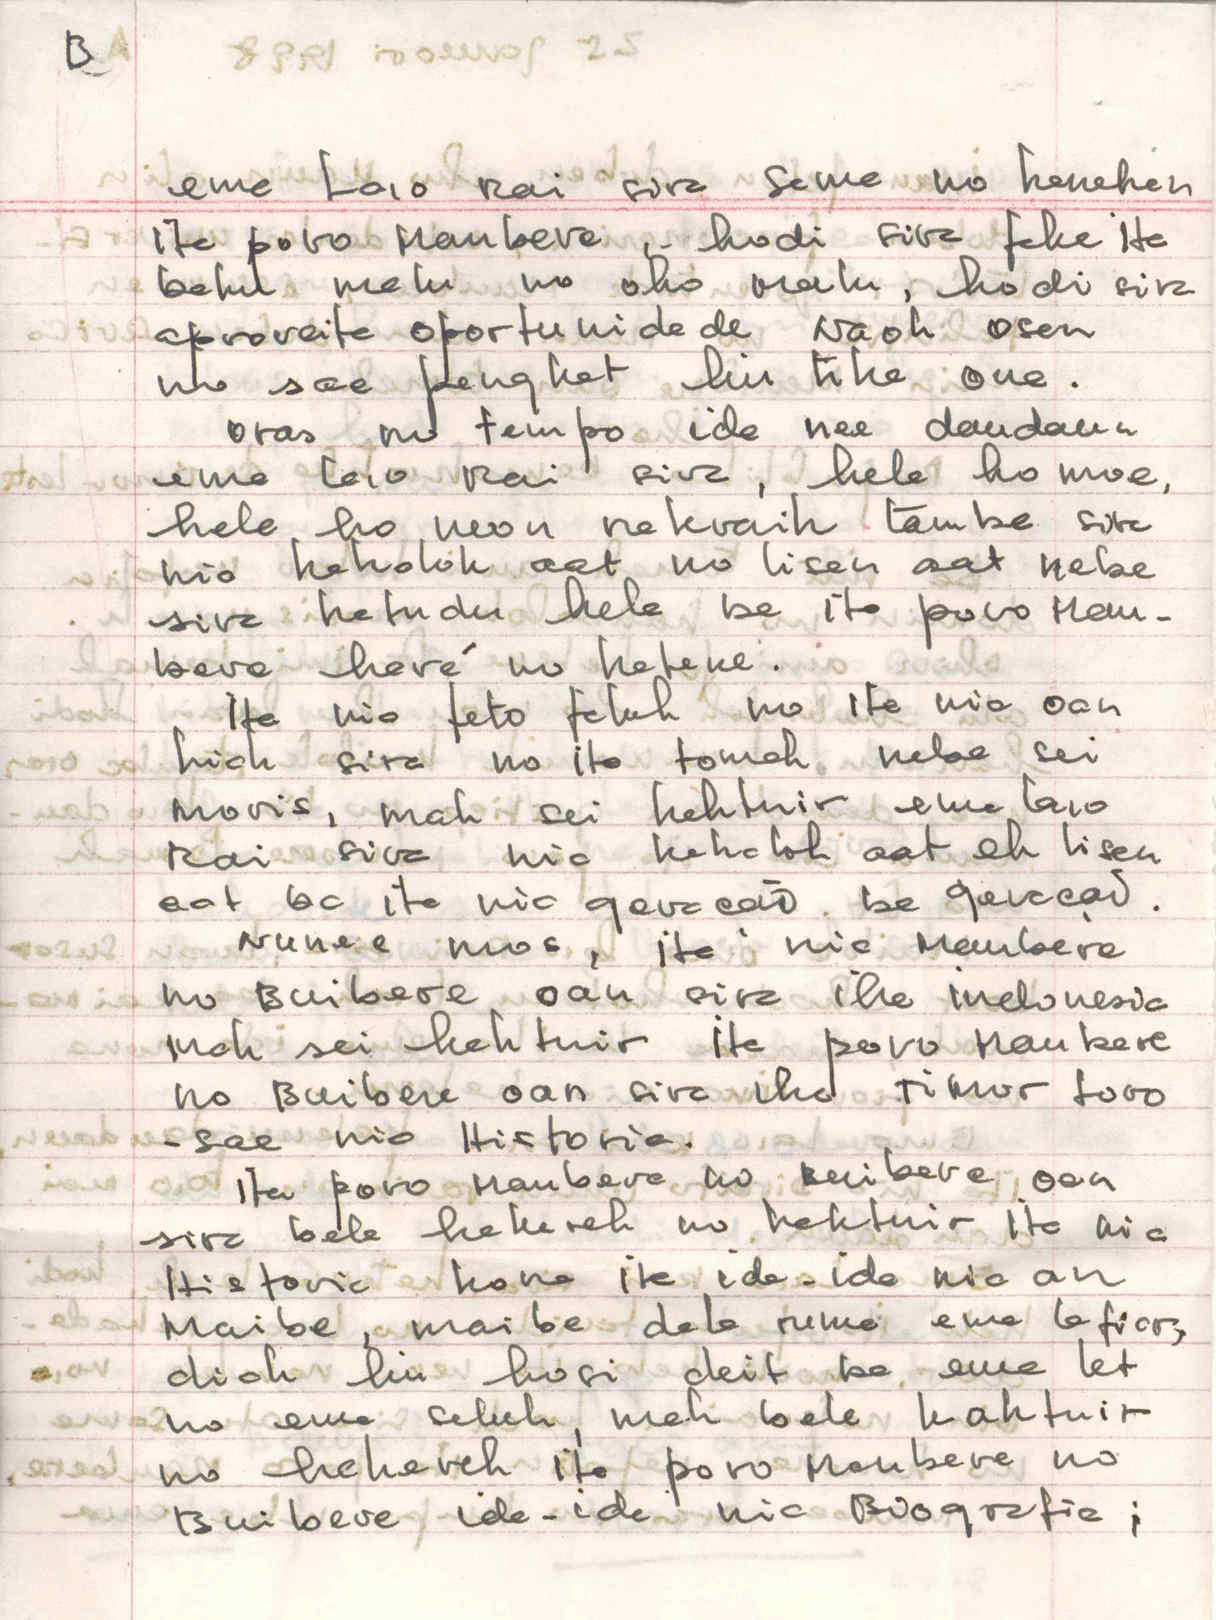 B
ema laio rai sira sama no hanehan
ita povo Maubere, hodi sira feke ita
bahu matu no oho matu, hodi sira
aproveita oportunidade Naok osan
no sae pangkat liu tika one.
oras no tempo ida nee daudaun
ema laio rai sira, hela ho moe,
hela ho neon nakraik tamba sira
nia hahalok aat no lisan aat nebe
sira hatudu hela ba ita povo Mau-
bere haré no hatene.
Ita nia feto faluk no ita nia oan
kiak sira no ita tomak nebe sei
Moris, mak sei haktuir ema laio
Rai sira nia hahalok aat eh lisan
aat ba ita nia geracaõ ba geracaõ.
Nunee mos, ita nia Maubere
no Buibere oan sira iha indonesia
Mak sei haktuir ita povo Maubere
no Buibere oan sira iha Timor Loro
-sae nia Historia.
Ita povo Maubere no Buibere oan
sira bele hakerek no haktuir ita nia
Historia kona ita ida-ida nia an
Maibe, maibe dala ruma ema la fiar,
diak liu husi deit ba ema let
no ema seluk, mak bele haktuir
no hakerek ita povo Maubere no
Buibere ida-ida nia Biografia;